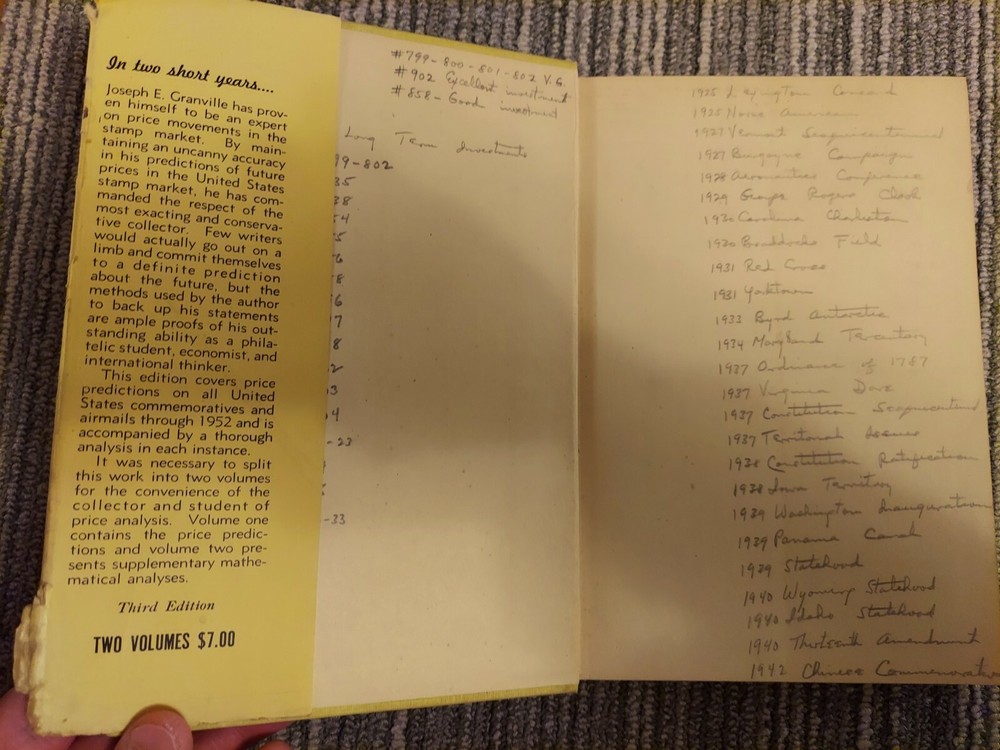 In two short years....
Joseph E. Granville has prov-
en himself to be an expert
on price movements in the
stamp market. By main-
taining an uncanny accuracy
in his predictions of future
prices in the United States
stamp market, he has com-
manded the respect of the
most exacting and conserva-
tive collector. Few writers
would actually go out on a
limb and commit themselves
to a definite prediction
about the future, but the
methods used by the author
to back up his statements
are ample proofs of his out-
standing ability as a phila-
telic student, economist, and
international thinker.
This edition covers price
predictions on all United
States commemoratives and
airmails through 1952 and is
accompanied by a thorough
analysis in each instance.
It was necessary to split
this work into two volumes
for the convenience of the
collector and student of
price analysis. Volume one
contains the price predic-
tions and volume two pre-
sents supplementary mathe-
matical analyses.
Third Edition
TWO VOLUMES $7.00
#799-800-801-802 V.G.
#902 Excellent investment
#858-Good investment
Long Term Investments
99-802
35
38
54
5
6
8
6
7
8
2
3
4
-23
-33
1925 Lexington Concord
1925 Norse American
1927 Vermont Sesquicentennial
1927 Burgoyne Campaign
1928 Aeronautics Conference
1929 George Rogers Clark
1930 Carolina Charleston
1930 Braddocks Field
1931 Red Cross
1931 Yorktown
1933 Byrd Antarctic
1934 Maryland Territory
1937 Ordinance of 1787
1937 Virginia Dare
1937 Constitution Sesquicentennial
1937 Territorial Issues
1938 Constitution Ratification
1938 Iowa Territory
1939 Washington Inauguration
1939 Panama Canal
1939 Statehood
1940 Wyoming Statehood
1940 Idaho Statehood
1940 Thirteenth Amendment
1942 Chinese Commemorative